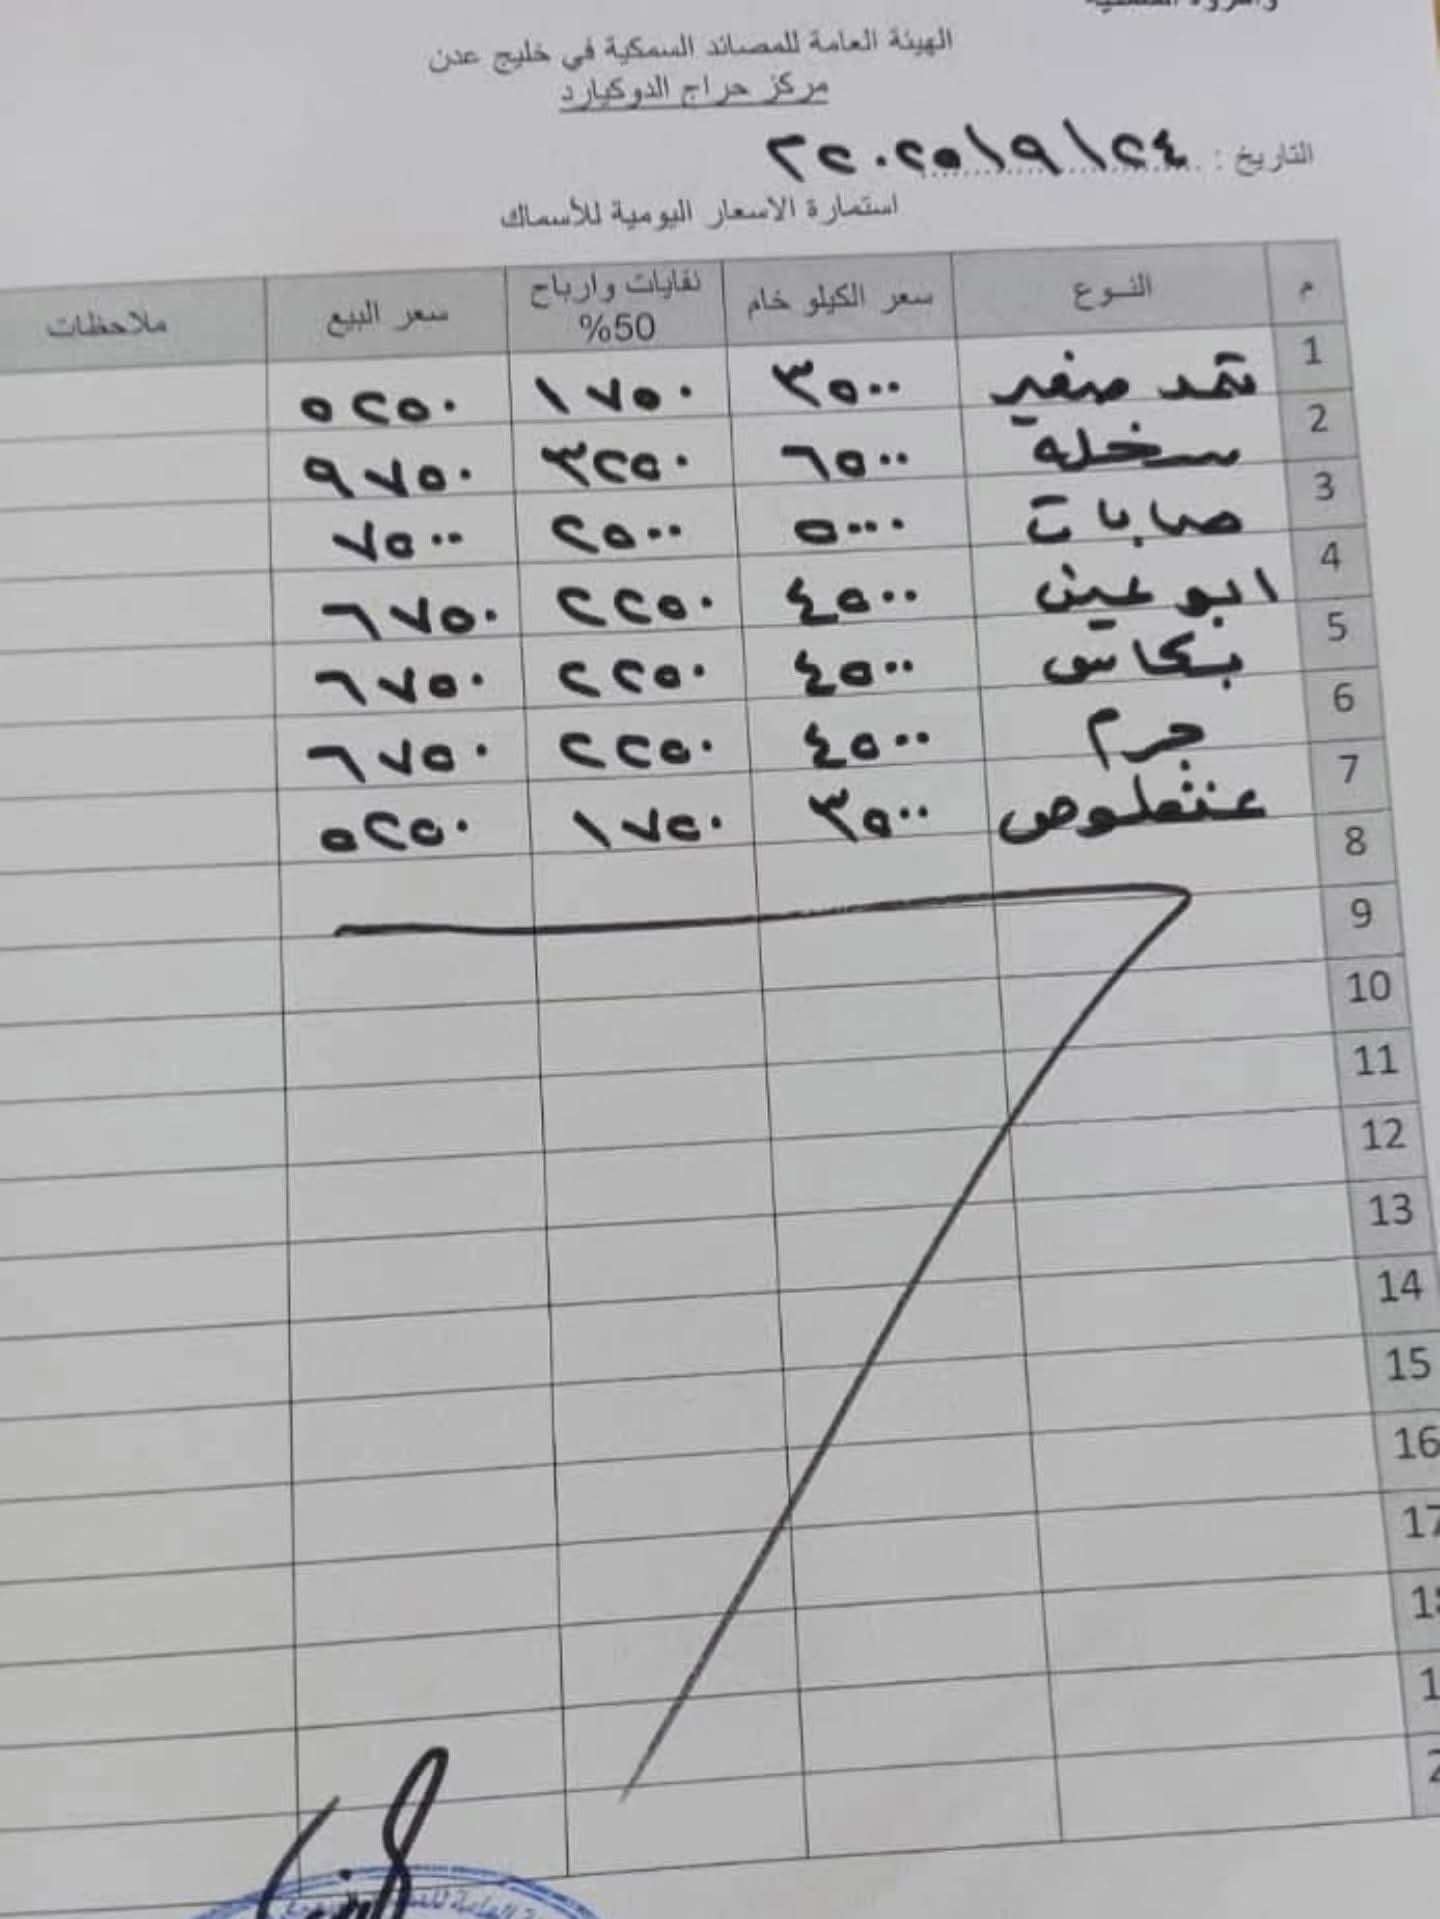 الهيئة العامة للمصائد السمكية في خليج عدن
مركز حراج الدوكيارد
التاريخ : ٢٤/٩/٢٠٢٥م
استمارة الاسعار اليومية للأسماك
م النـوع سعر الكيلو خام نفايات وارباح 50% سعر البيع ملاحظات
1 ثمد صغير ٣٥٠٠ ١٧٥٠ ٥٢٥٠
2 سخلة ٦٥٠٠ ٣٢٥٠ ٩٧٥٠
3 صابات ٥٠٠٠ ٢٥٠٠ ٧٥٠٠
4 ابو عين ٤٥٠٠ ٢٢٥٠ ٦٧٥٠
5 بكاس ٤٥٠٠ ٢٢٥٠ ٦٧٥٠
6 جرم ٤٥٠٠ ٢٢٥٠ ٦٧٥٠
7 عنثلوص ٣٥٠٠ ١٧٥٠ ٥٢٥٠
8
9
10
11
12
13
14
15
16
17